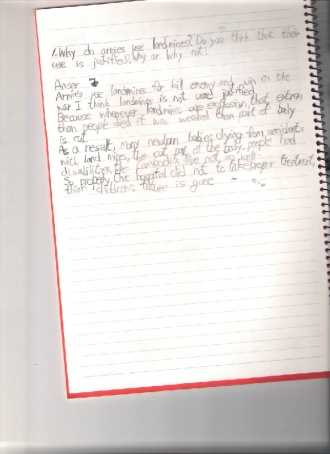 1. Why do armies use landmines? Do you think that their
use is justified? Why or why not?
Anser
Armies use landmines for kill enemy and win on the
war I think landmines is not used justified.
Because whenever landmines are explosion, that
than people died it was weaked than part of body
is cut.
As a result, many newborn babies dying from accidents
with land mine, the cut part of the body. people had
disabilities, the Cambodia live not so well
So properly, the hospital did not to take proper treatment
that children's future is gone